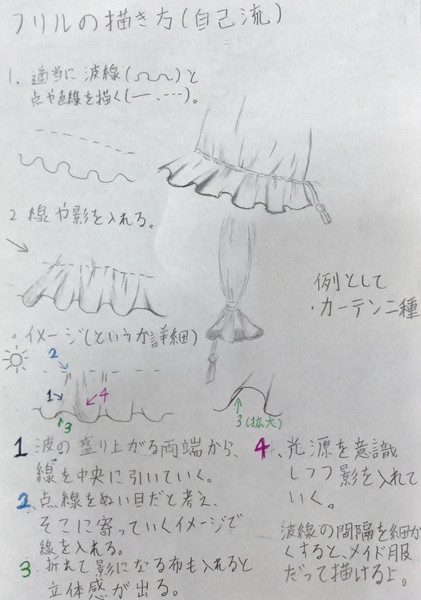 フリルの描き方(自己流)
1、適当に波線( )と
点や直線を描く(一、…)。
2 線や影を入れる。
例として
・カーテン二種
・イメージ(というか詳細)
2
1
4
3
3(拡大)
1 波の盛り上がる両端から、
線を中央に引いていく。
2、点線をぬい目だと考え、
そこに寄っていくイメージで
線を入れる。
3 折れて影になる布も入れると
立体感が出る。
4、光源を意識
しつつ影を入れて
いく。
波線の間隔を細か
くすると、メイド服
だって描けるよ。